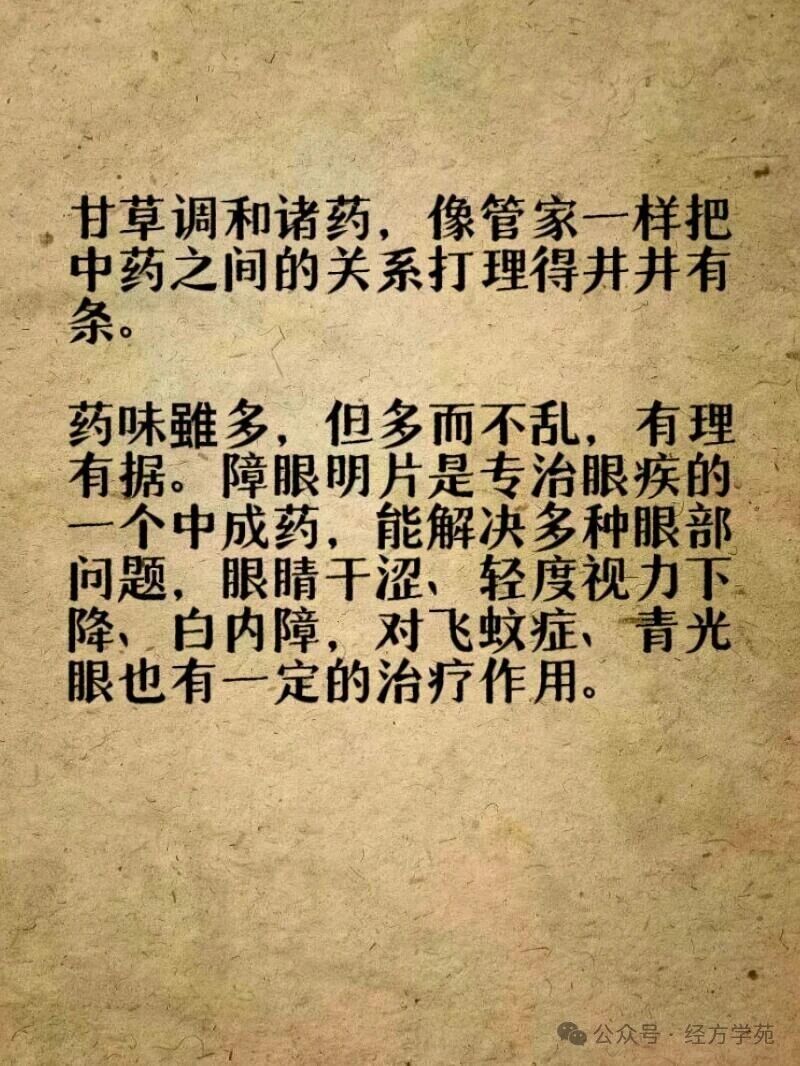 甘草调和诸药，像管家一样把
中药之间的关系打理得井井有
条。
药味雖多，但多而不乱，有理
有据。障眼明片是专治眼疾的
一个中成药，能解决多种眼部
问题，眼睛干涩、轻度视力下
降、白内障，对飞蚊症、青光
眼也有一定的治疗作用。
公众号·经方学苑